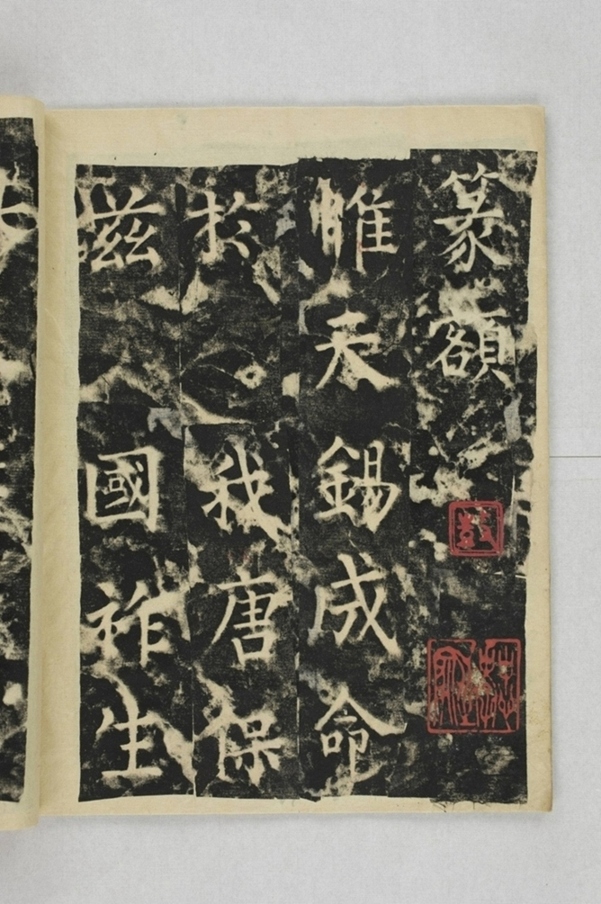 篆額
惟天錫成命
於我唐保
茲國祚生